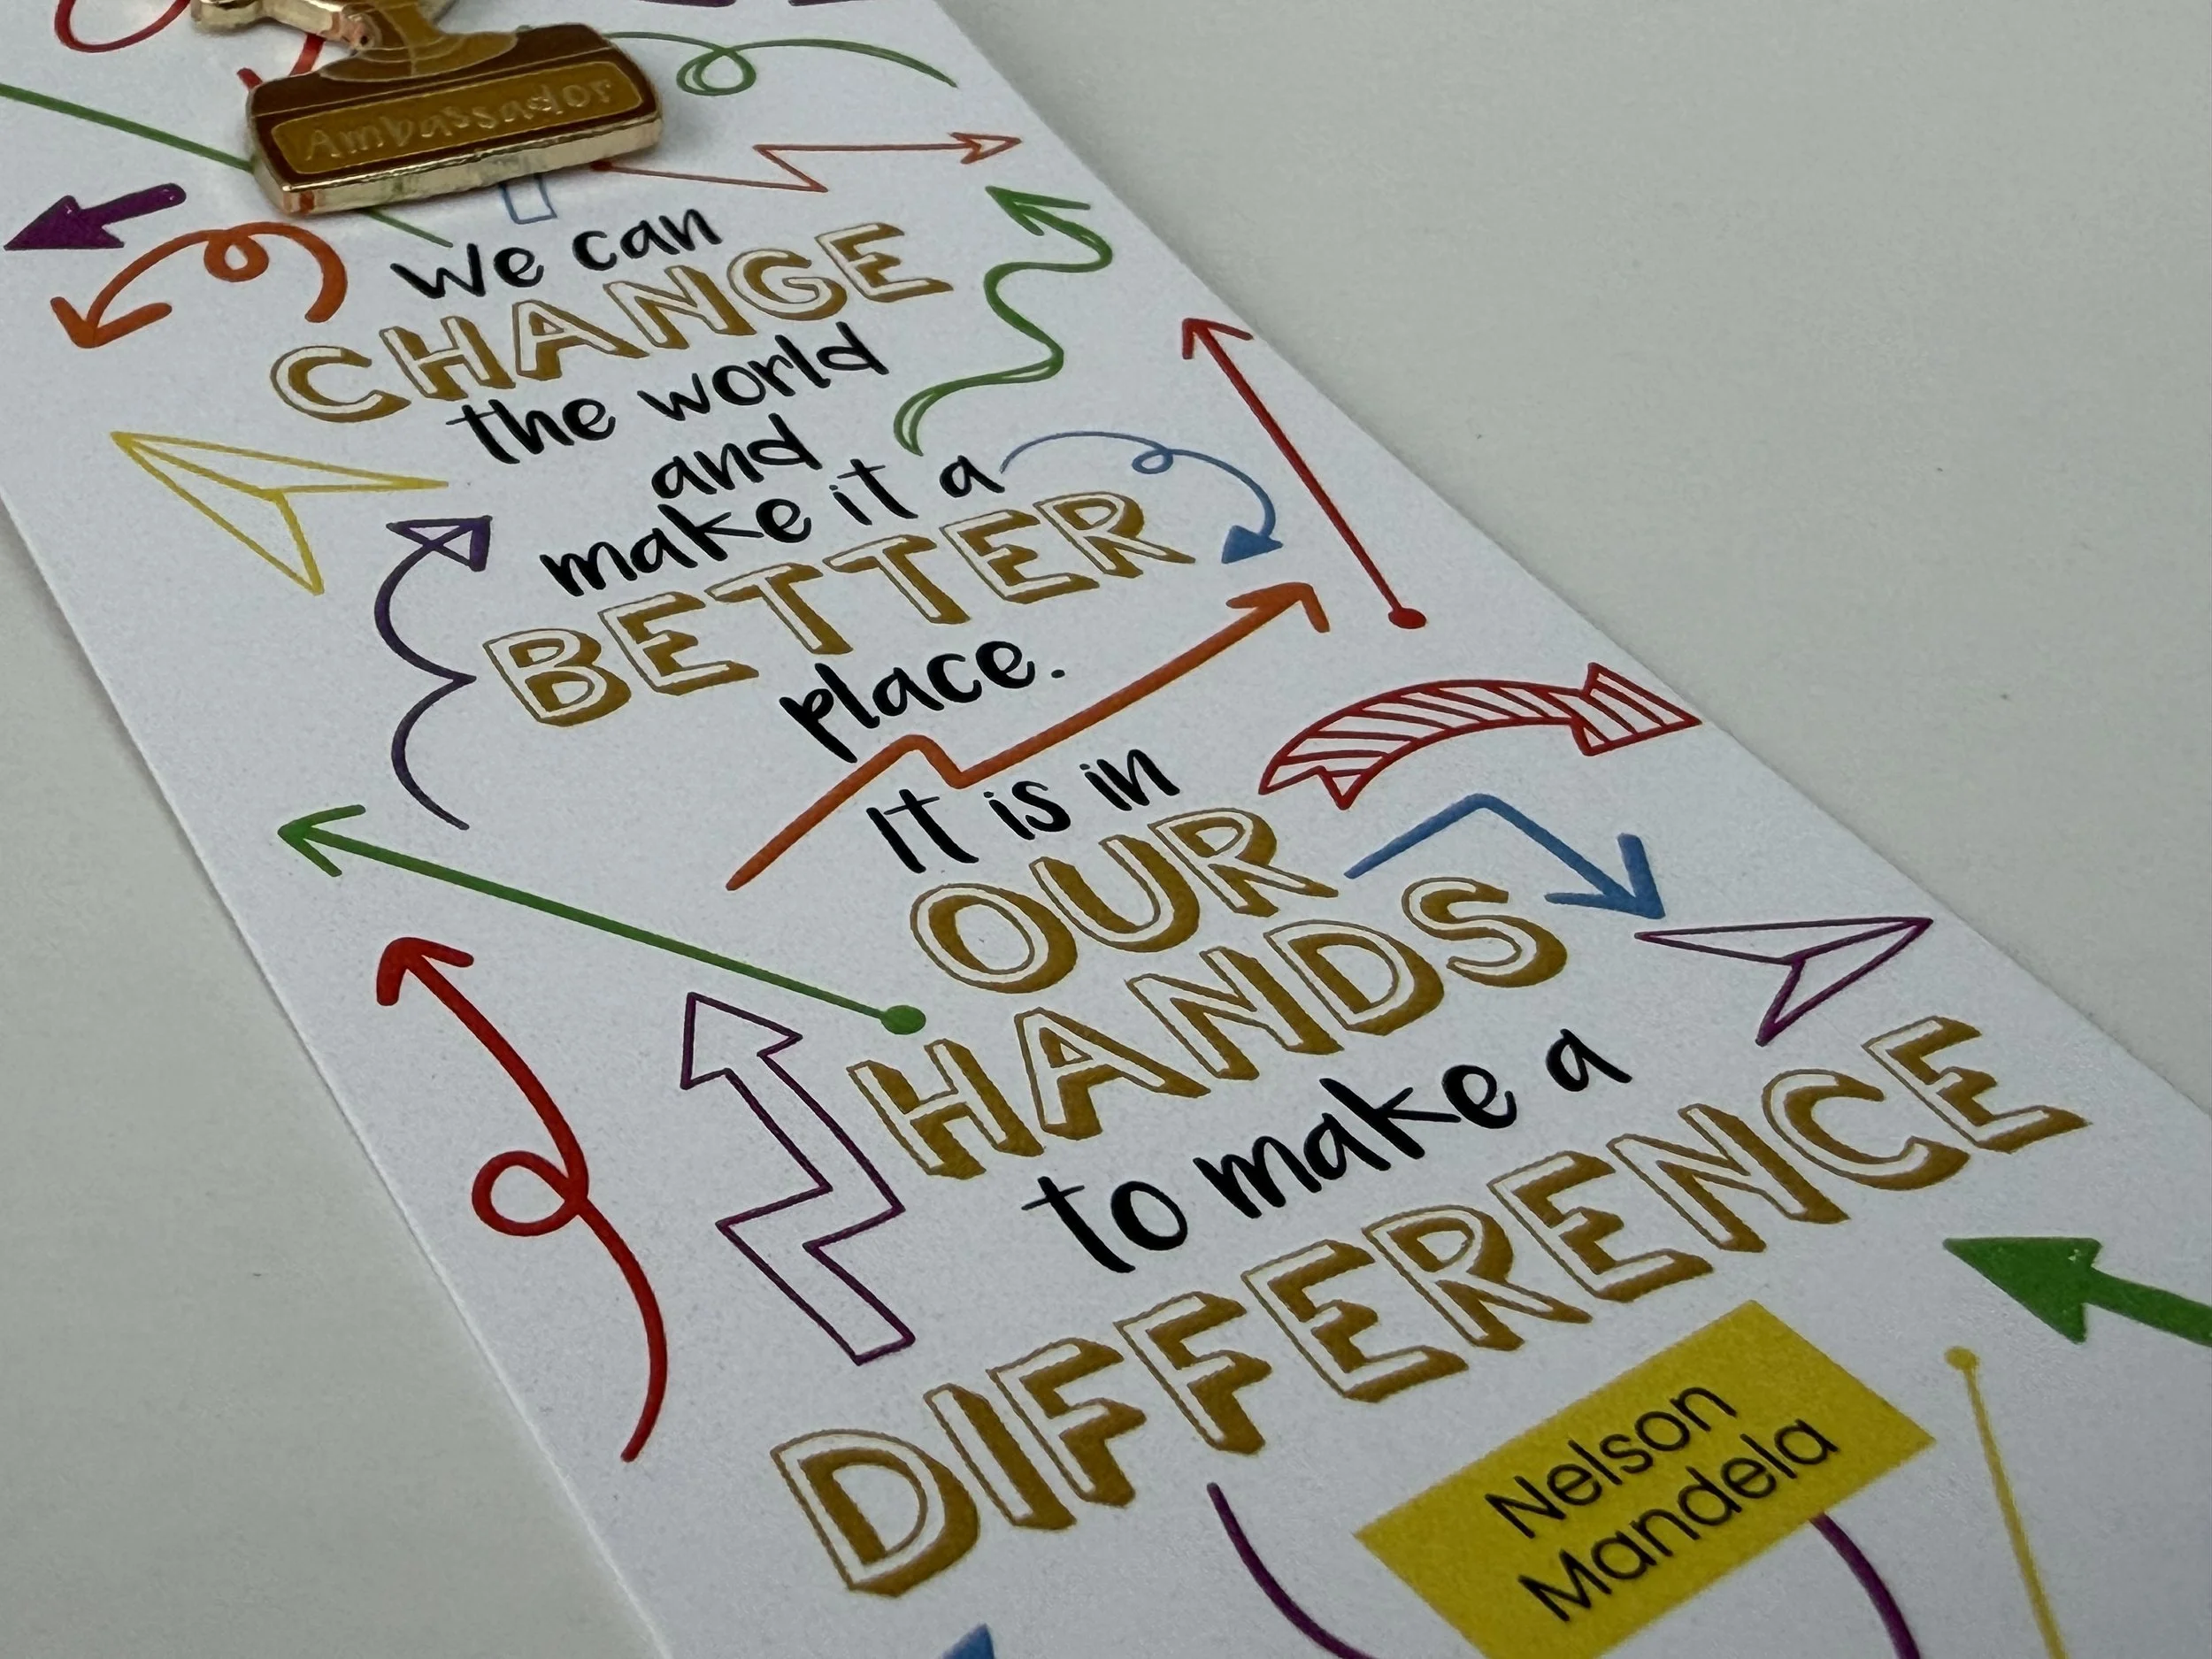 Ambassador
we can
CHANGE
the world
and
make it a
BETTER
place.
It is in
OUR
HANDS
to make a
DIFFERENCE
Nelson
Mandela